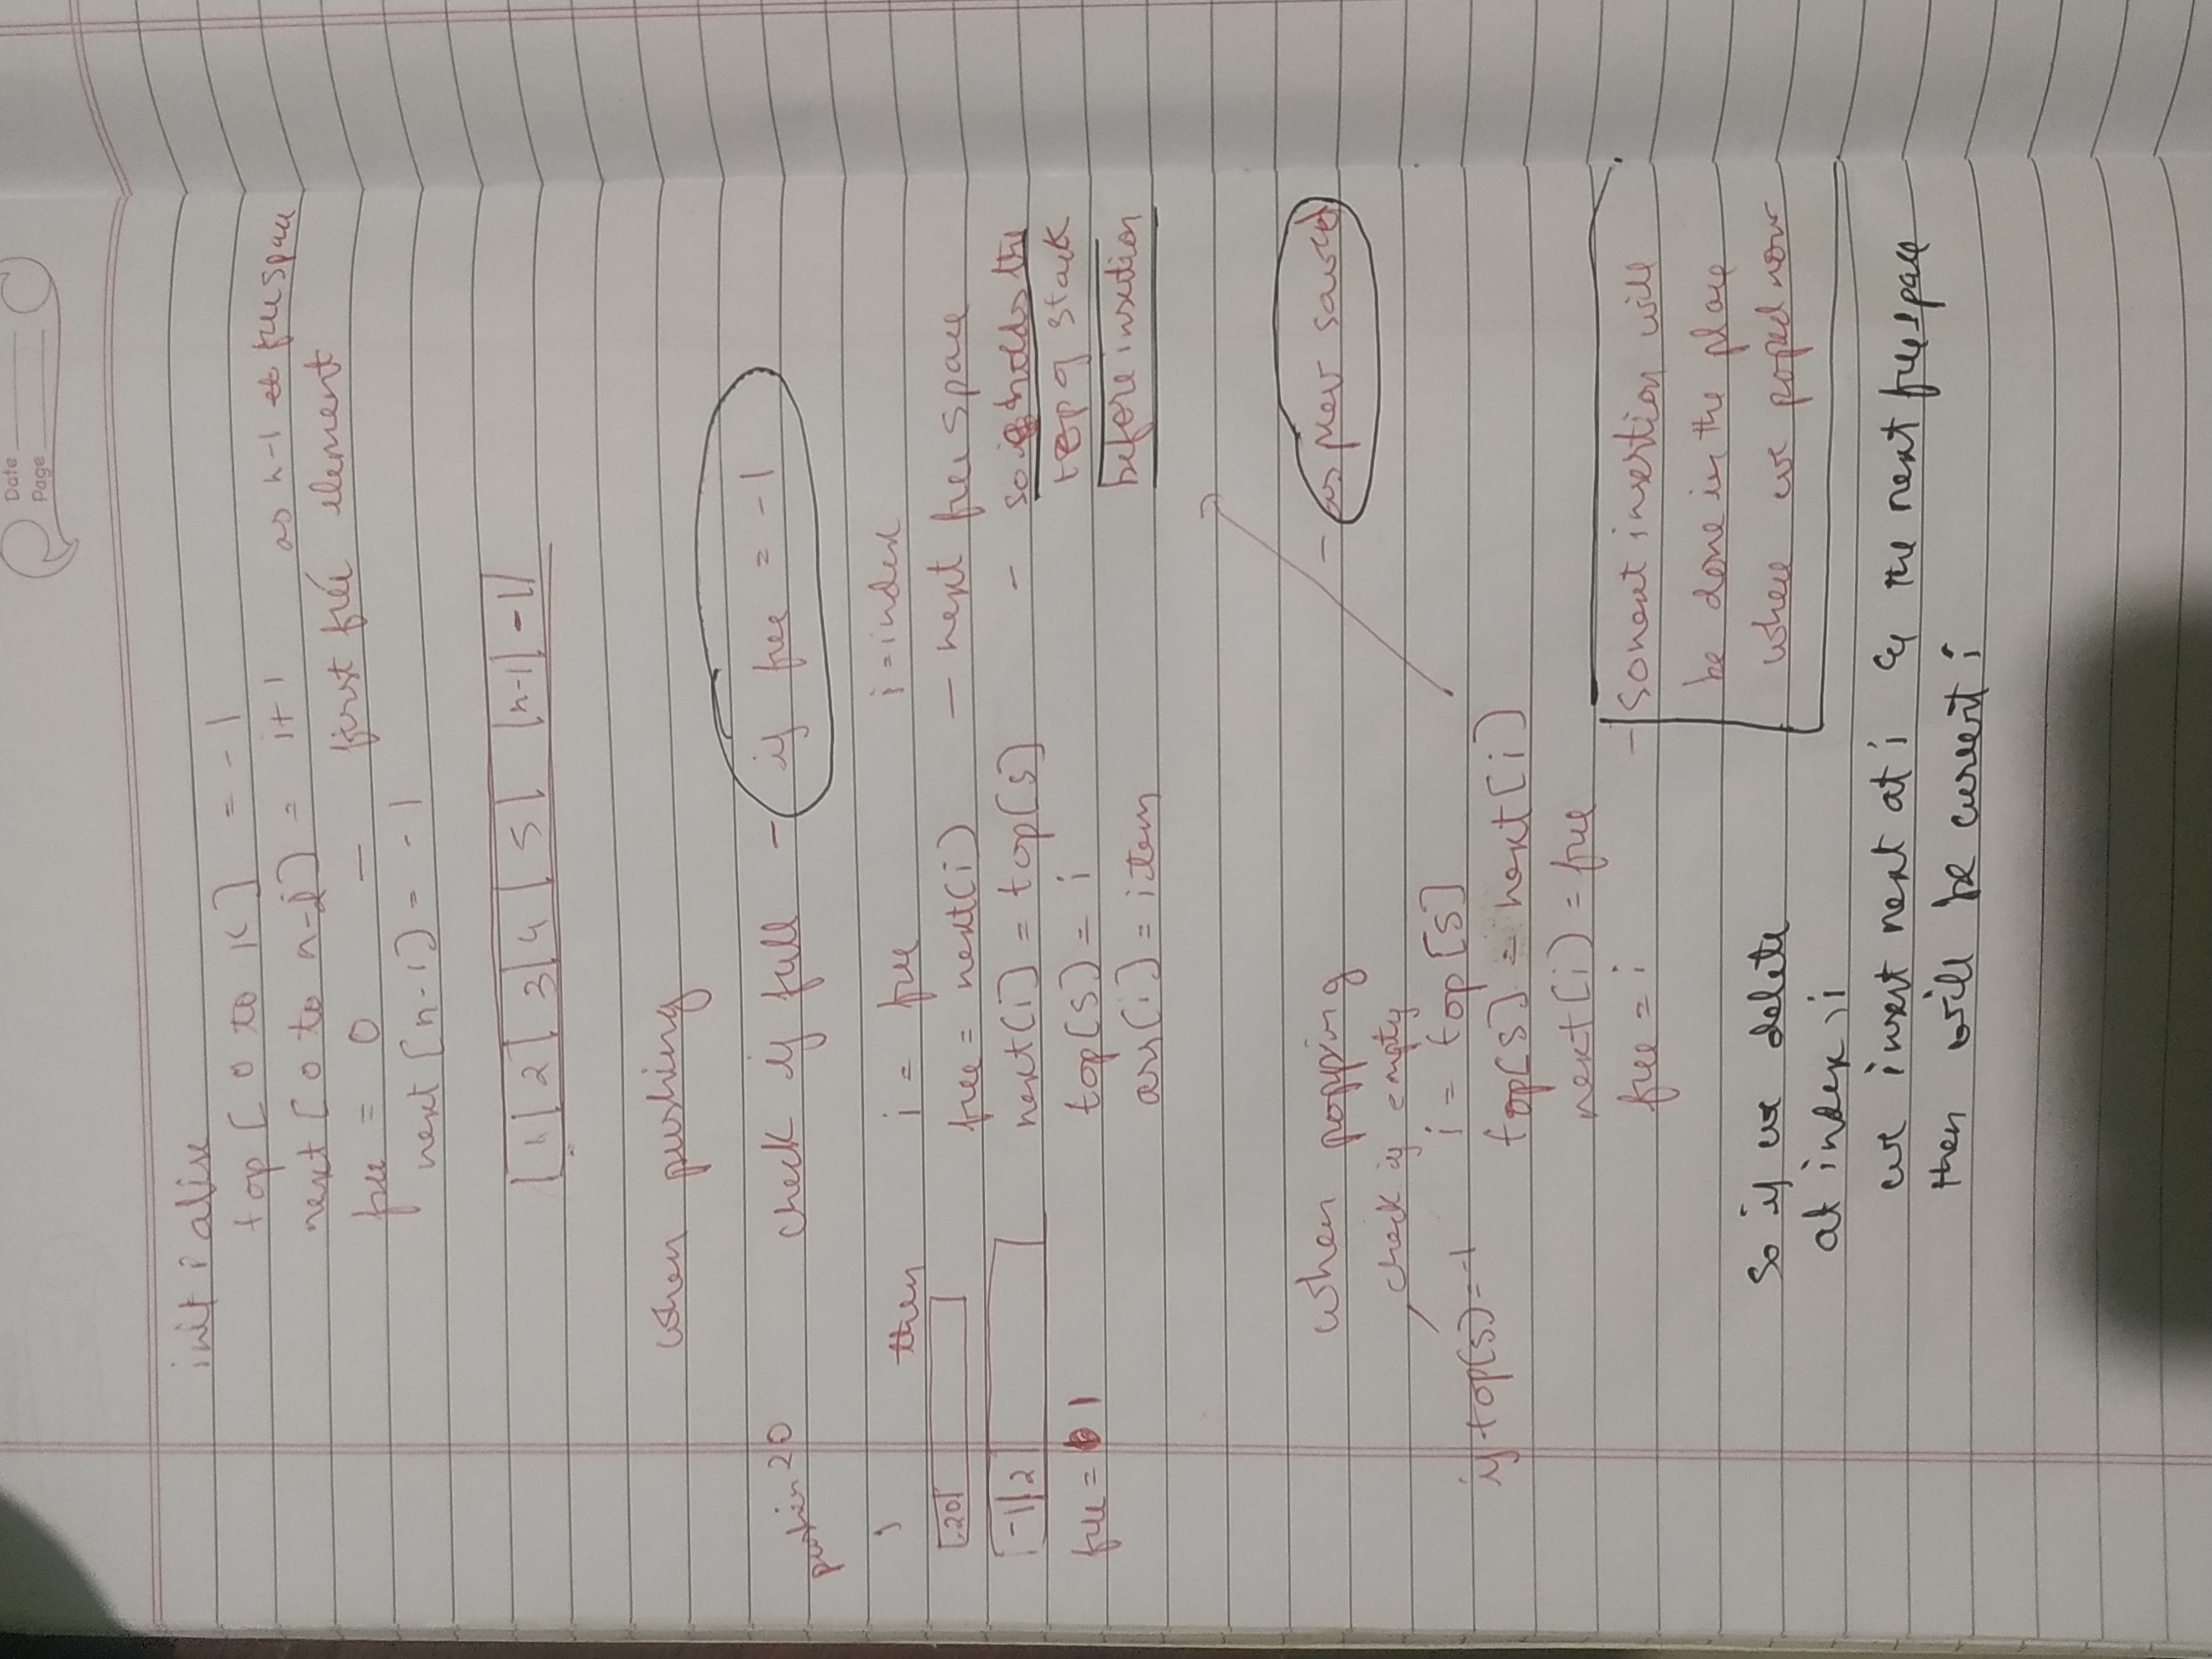 Date
Page
initialise
top [ 0 to K ] = -1
next [ 0 to n-2 ] = i+1 as n-1 free space
free = 0 — first free element
next [n-1] = -1
1 2 3 4 5 n-1 -1
when pushing
pushin 20 check if full - if free = -1
then i = free i = index
20 free = next(i) — next free space
-1 2 next[i] = top[s] - so holds the
top of stack
free = 1 top[s] = i
before insertion
arr[i] = item
when popping - as prev saved
check if empty
i = top[s]
if top[s] = -1
top[s] = next[i]
next[i] = free
free = i - so next insertion will
be done in the place
where we poped now
so if we delete
at index i
we insert next at i & the next free space
then will be current i